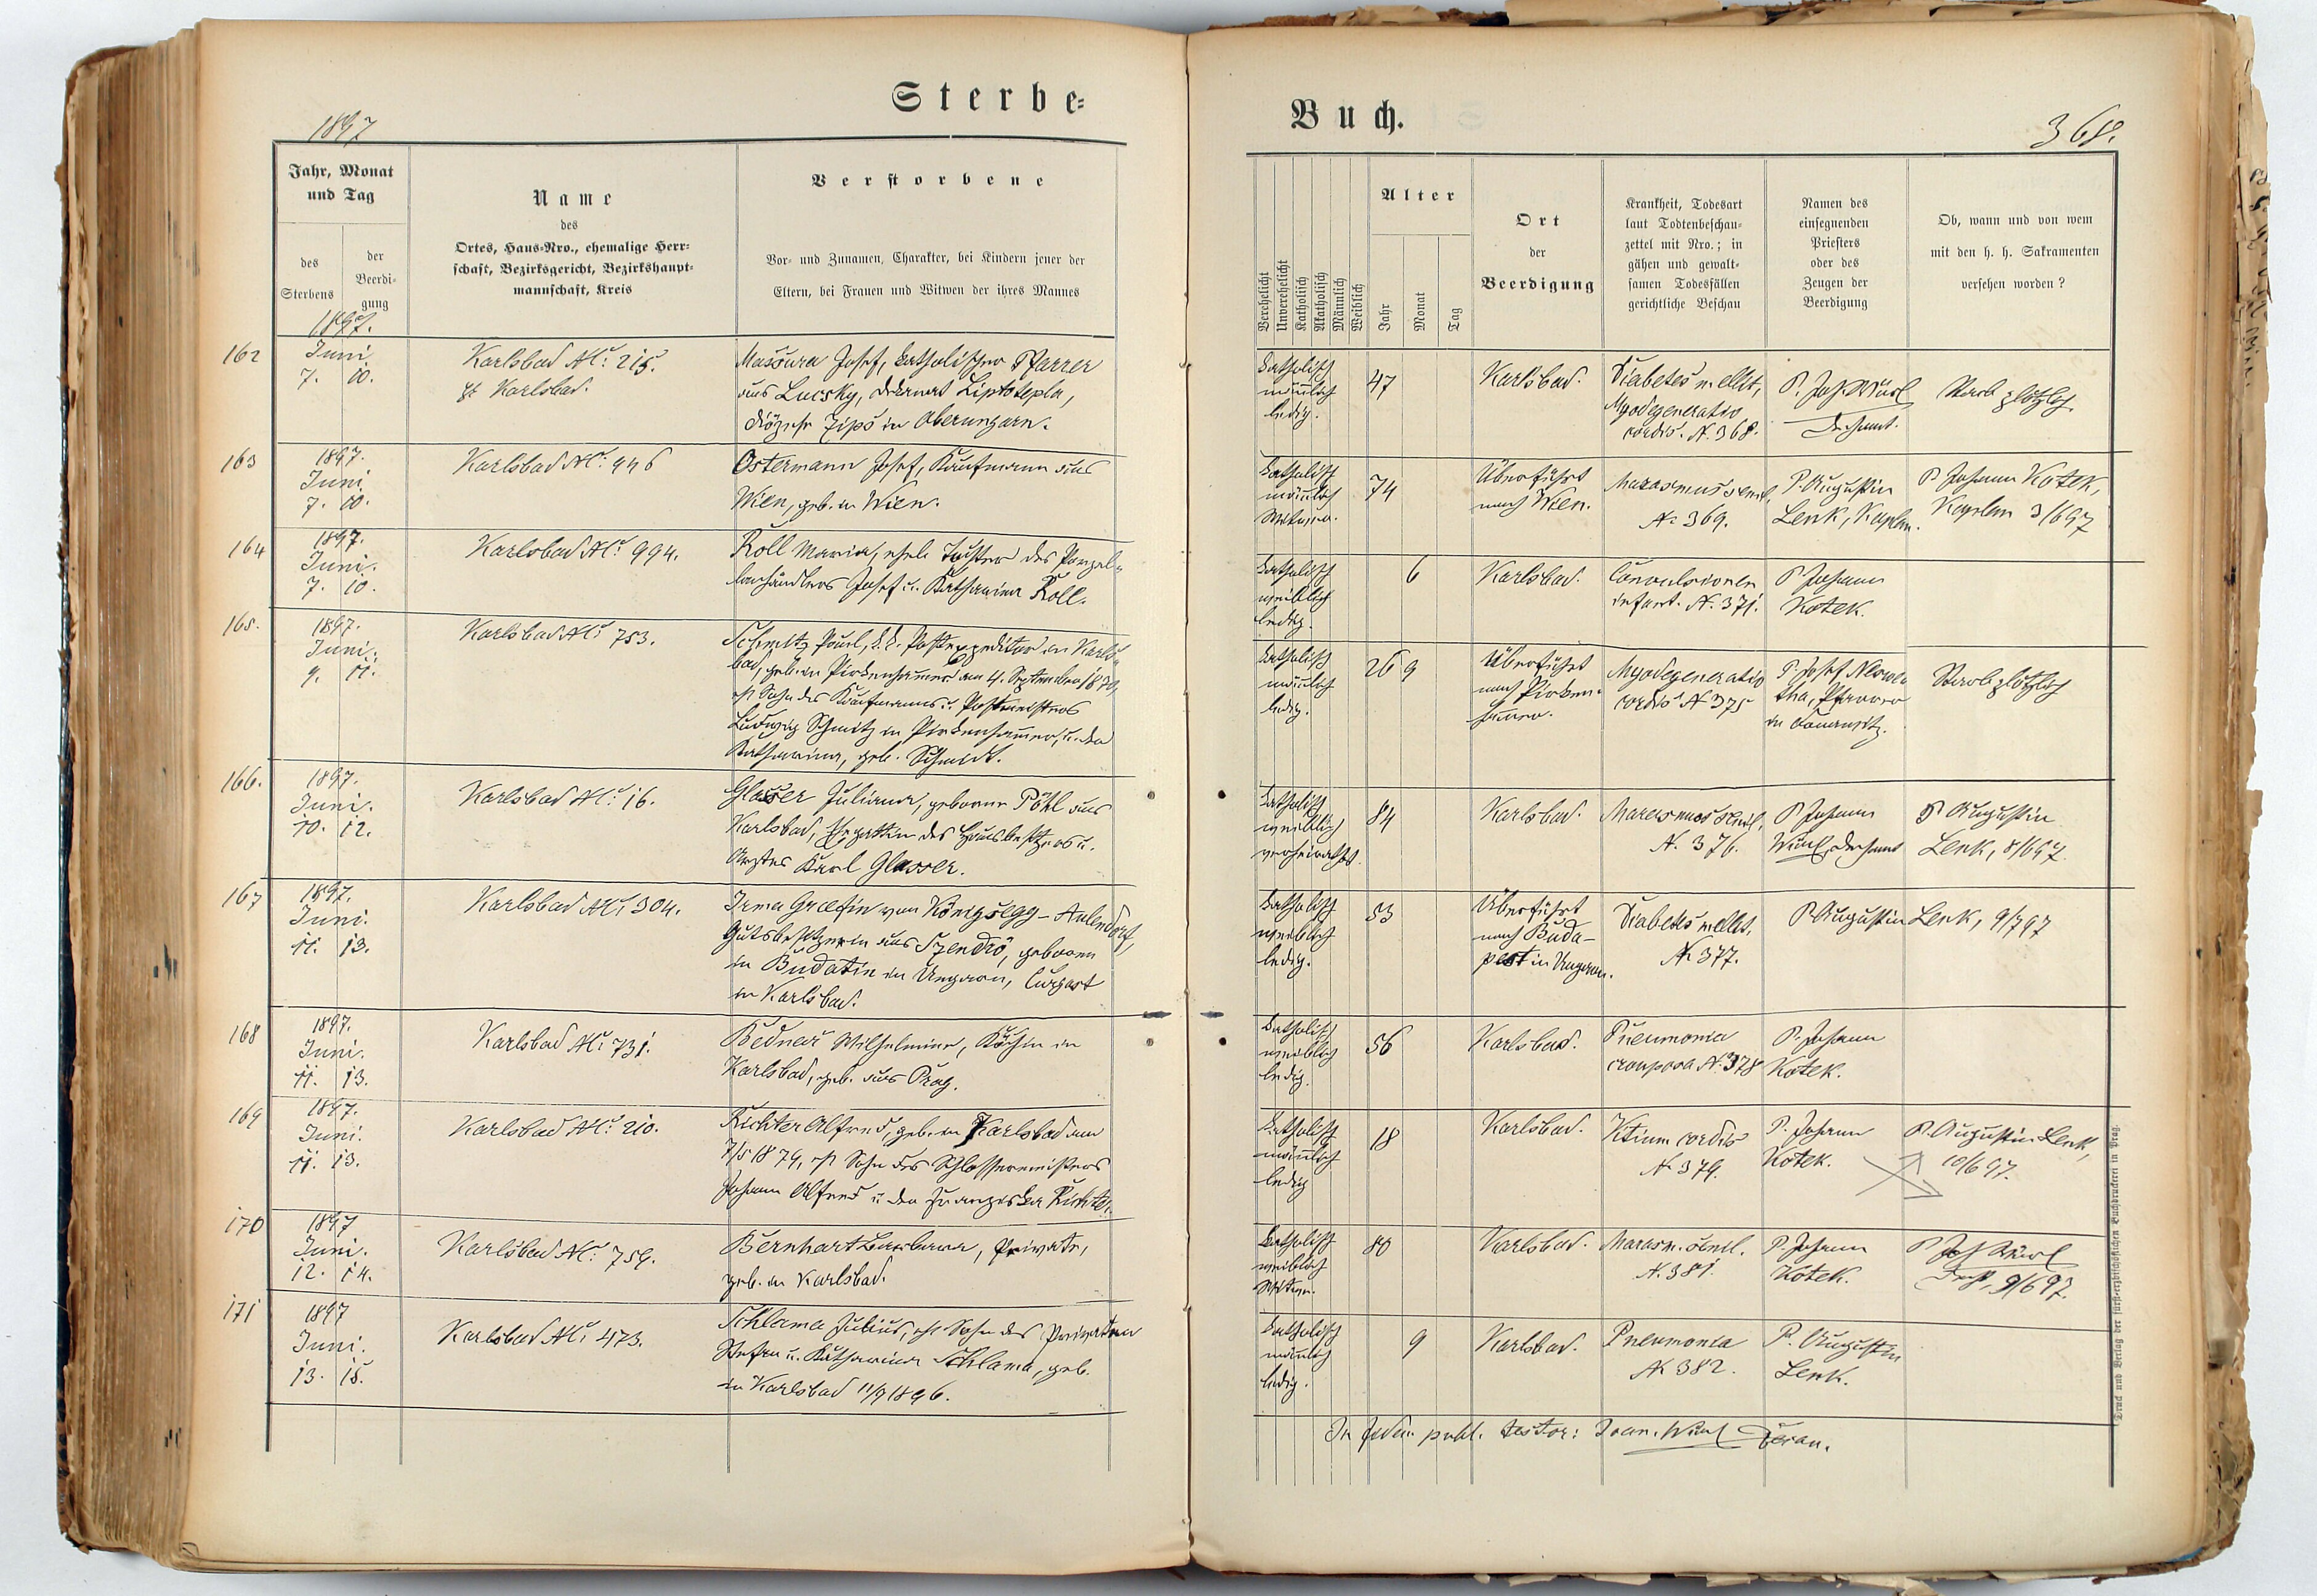 Sterbe-
1897
Jahr, Monat
und Tag
des
Sterbens
der
Beerdi-
gung
Name
des
Ortes, Haus-Nro., ehemalige Herr-
schaft, Bezirksgericht, Bezirkshaupt-
mannschaft, Kreis
Verstorbene
Vor- und Zunamen, Charakter, bei Kindern jener der
Eltern, bei Frauen und Witwen der ihres Mannes
1897.
162
Juni
7. 10.
Karlsbad Nc: 215.
Karlsbad.
Massura Josef, katholischer Pfarrer
aus Lucsky, Dekanat Liptotepla,
Diözese Zips in Oberungarn.
163
1897.
Juni
7. 10.
Karlsbad Nc: 446
Ostermann Josef, Kaufmann aus
Wien, geb. in Wien.
164
1897.
Juni.
7. 10.
Karlsbad Nc: 994.
Roll Maria, ehel. Tochter des Porzel-
lanhändlers Josef u. Katharina Roll.
165.
1897.
Juni.
9. 11.
Karlsbad Nc: 753.
Schmitz Paul, k. k. Postexpeditor in Karls-
bad, geb. in Pirkenhammer am 4. September 1870,
eh. Sohn des Kaufmanns u. Postmeisters
Ludwig Schmitz in Pirkenhammer, u. der
Katharina, geb. Schmidt.
166.
1897.
Juni.
10. 12.
Karlsbad Nc: 16.
Glasser Juliana, geborene Pöhl aus
Karlsbad, Ehegattin des Hausbesitzers u.
Arztes Karl Glasser.
167
1897.
Juni.
11. 13.
Karlsbad Nc: 304.
Irma Graefin von Königsegg-Aulendorf,
Gutsbesitzerin aus Szendrö, geboren
in Budatin in Ungarn, Curgast
in Karlsbad.
168
1897.
Juni.
11. 13.
Karlsbad Nc: 731.
Bednar Wilhelmine, Köchin in
Karlsbad, geb. aus Prag.
169
1897.
Juni.
11. 13.
Karlsbad Nc: 210.
Richter Alfred, geb. in Karlsbad am
7/5 1879, eh. Sohn des Schlossermeisters
Johann Alfred u. der Franziska Richter.
170
1897
Juni.
12. 14.
Karlsbad Nc: 759.
Bernhart Barbara, Private,
geb. in Karlsbad.
171
1897
Juni.
13. 15.
Karlsbad Nc: 473.
Schlama Julius, eh. Sohn des Privaten
Stefan u. Katharina Schlama, geb.
in Karlsbad 11/9 1896.
Buch.
368.
Verehelicht
Unverehelicht
Katholisch
Akatholisch
Männlich
Weiblich
Alter
Jahr
Monat
Tag
Ort
der
Beerdigung
Krankheit, Todesart
laut Todtenbeschau-
zettel mit Nro.; in
gähen und gewalt-
samen Todesfällen
gerichtliche Beschau
Namen des
einsegnenden
Priesters
oder des
Zeugen der
Beerdigung
Ob, wann und von wem
mit den h. h. Sakramenten
versehen worden?
katholisch
männlich
ledig.
47
Karlsbad.
Diabetes mellit,
Myodegeneratio
cordis. N. 368.
P. Joh. Würl
Dechant.
Starb plötzlich.
katholisch
männlich
Witwer.
74
Überführt
nach Wien.
Marasmus senil,
N. 369.
P. Augustin
Lenk, Kaplan.
P. Johann Kotek,
Kaplan 3/6 97
katholisch
weiblich
ledig.
6
Karlsbad.
Convulsionen
infant. N. 371.
P. Johann
Kotek.
katholisch
männlich
ledig.
26 9
Überführt
nach Pirken-
hammer.
Myodegeneratio
cordis N 375
P. Josef
Pfarrer
Starb plötzlich
katholisch
weiblich
verheirathet.
84
Karlsbad.
Marasmus senil,
N. 376.
P. Johann
Würl, Dechant
P. Augustin
Lenk, 8/6 97.
katholisch
weiblich
ledig.
53
Überführt
nach Buda-
pest in Ungarn.
Diabetes mellit.
N. 377.
P. Augustin Lenk, 9/7 97
katholisch
weiblich
ledig.
56
Karlsbad.
Pneumonia
crouposa N. 378
P. Johann
Kotek.
katholisch
männlich
ledig
18
Karlsbad.
Vitium cordis
N. 379.
P. Johann
Kotek.
P. Augustin Lenk,
10/6 97.
katholisch
weiblich
Witwe.
80
Karlsbad.
Marasm. senil.
N. 381.
P. Johann
Kotek.
P. Joh. Würl
Dech, 9/6 97.
katholisch
männlich
ledig.
9
Karlsbad.
Pneumonia
N. 382.
P. Augustin
Lenk.
In fidem publ. testor: Joan. Würl Decan.
Druck und Verlag der fürst-erzbischöflichen Buchdruckerei in Prag.